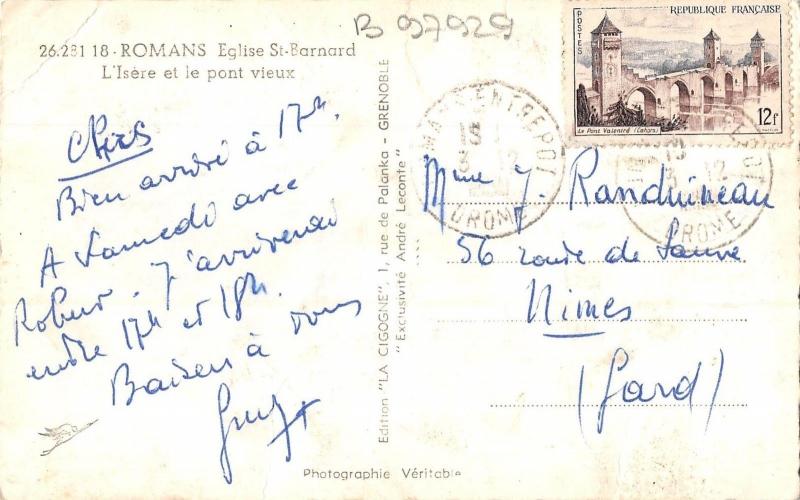 B 97929
26.281 18 - ROMANS Eglise St-Barnard
L'Isère et le pont vieux
Chers
Bien arrivé à 17h.
A Samedi avec
Robert. J'arriverai
entre 17h et 18h.
Baisers à vous
Guy
Edition "LA CIGOGNE", 1, rue de Palanka - GRENOBLE
"Exclusivité André Leconte"
Photographie Véritable
POSTES
REPUBLIQUE FRANÇAISE
Le Pont Valentré (Cahors)
12f
ENTREPOT
DROME
12
DROME
Mme J. Randuineau
56 route de Sauve
Nimes
(Gard)